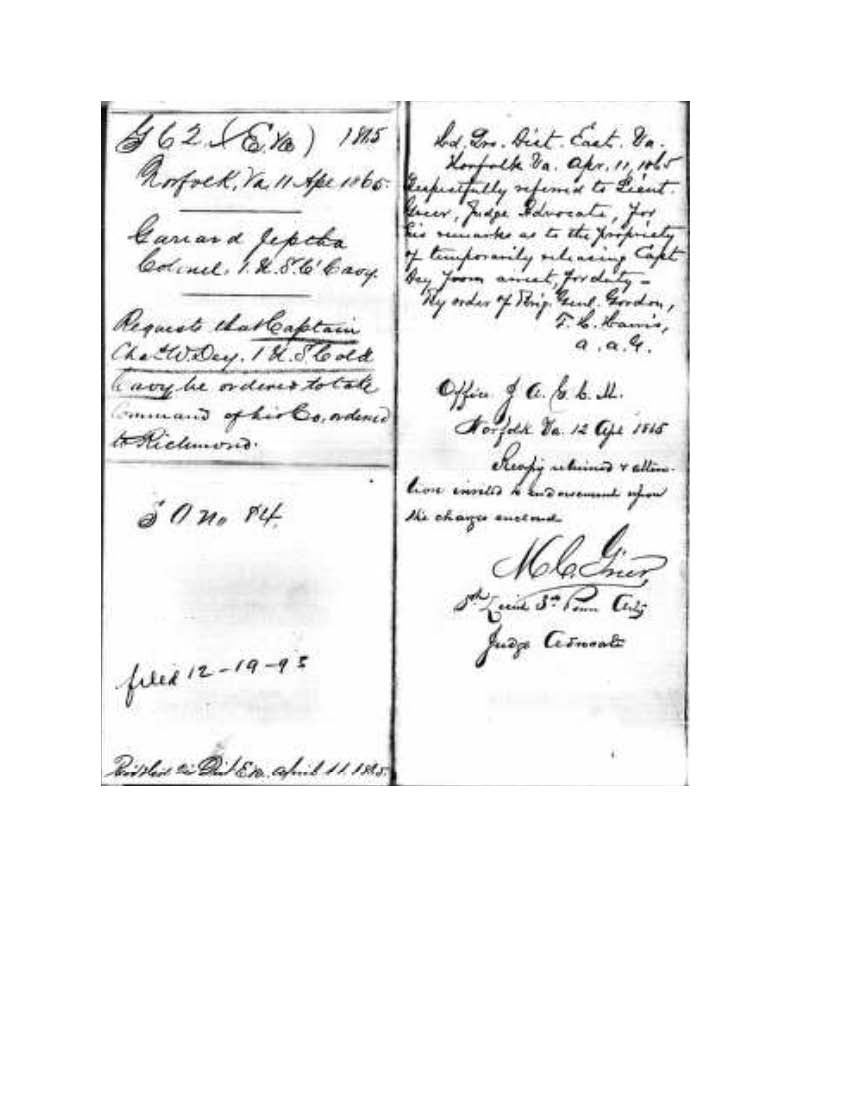 G 62 (E. Va) 1865
Norfolk, Va, 11 Apl 1865.
Garrard Jeptha
Colonel, 1. U. S. C' Cavy.
Requests that Captain
Chas W. Dey. 1 U. S. Cold
Cavy be ordered to take
Command of his Co, ordered
to Richmond.
S O No 84.
filed 12-19-95
Dist E Va. April 11. 1865.
Hd. Qrs. Dist. East. Va.
Norfolk Va. Apr. 11, 1865
Respectfully referred to Lieut.
Grier, Judge Advocate, for
his remarks as to the propriety
of temporarily releasing Capt
Dey from arrest, for duty -
By order of Brig. Genl. Gordon,
F. H. Harris,
a. a. G.
Office J A. G. C. M.
Norfolk Va. 12 Apl 1865
Respy returned & atten-
tion invited to endorsement upon
the charges enclosed.
M C. Grier,
Lieut 3rd Penn Arty
Judge Advocate